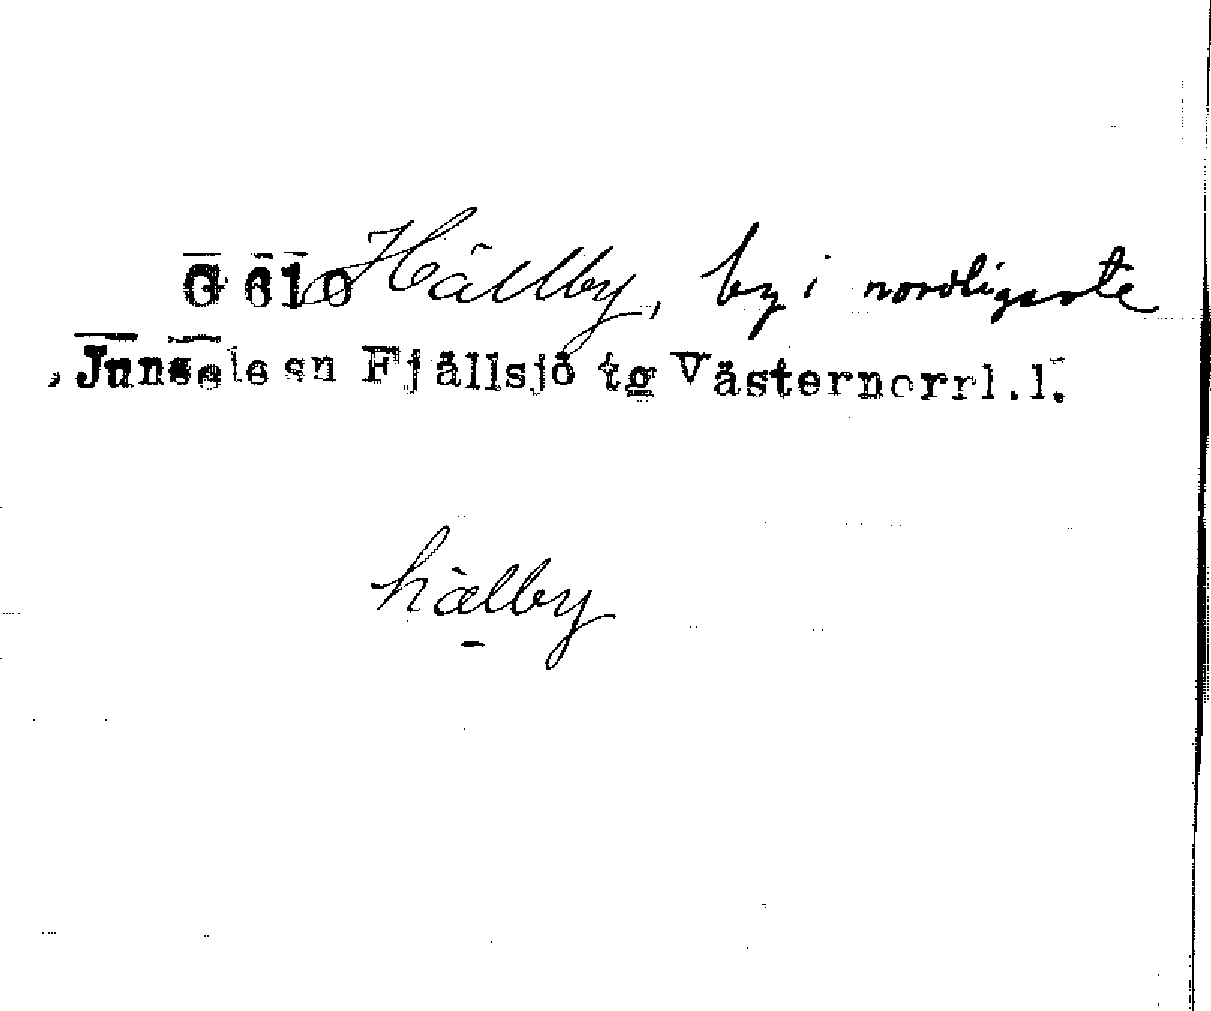 G 610 Hällby, by i nordligaste
, Junsele sn Fjällsjö tg Västernorrl.l.
hælby